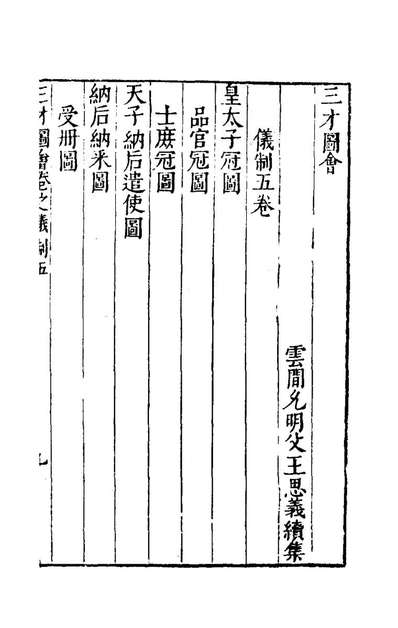 三才圖會
雲間允明父王思義續集
儀制五卷
皇太子冠圖
品官冠圖
士庶冠圖
天子納后遣使圖
納后納采圖
受册圖
三才圖會卷之儀制五